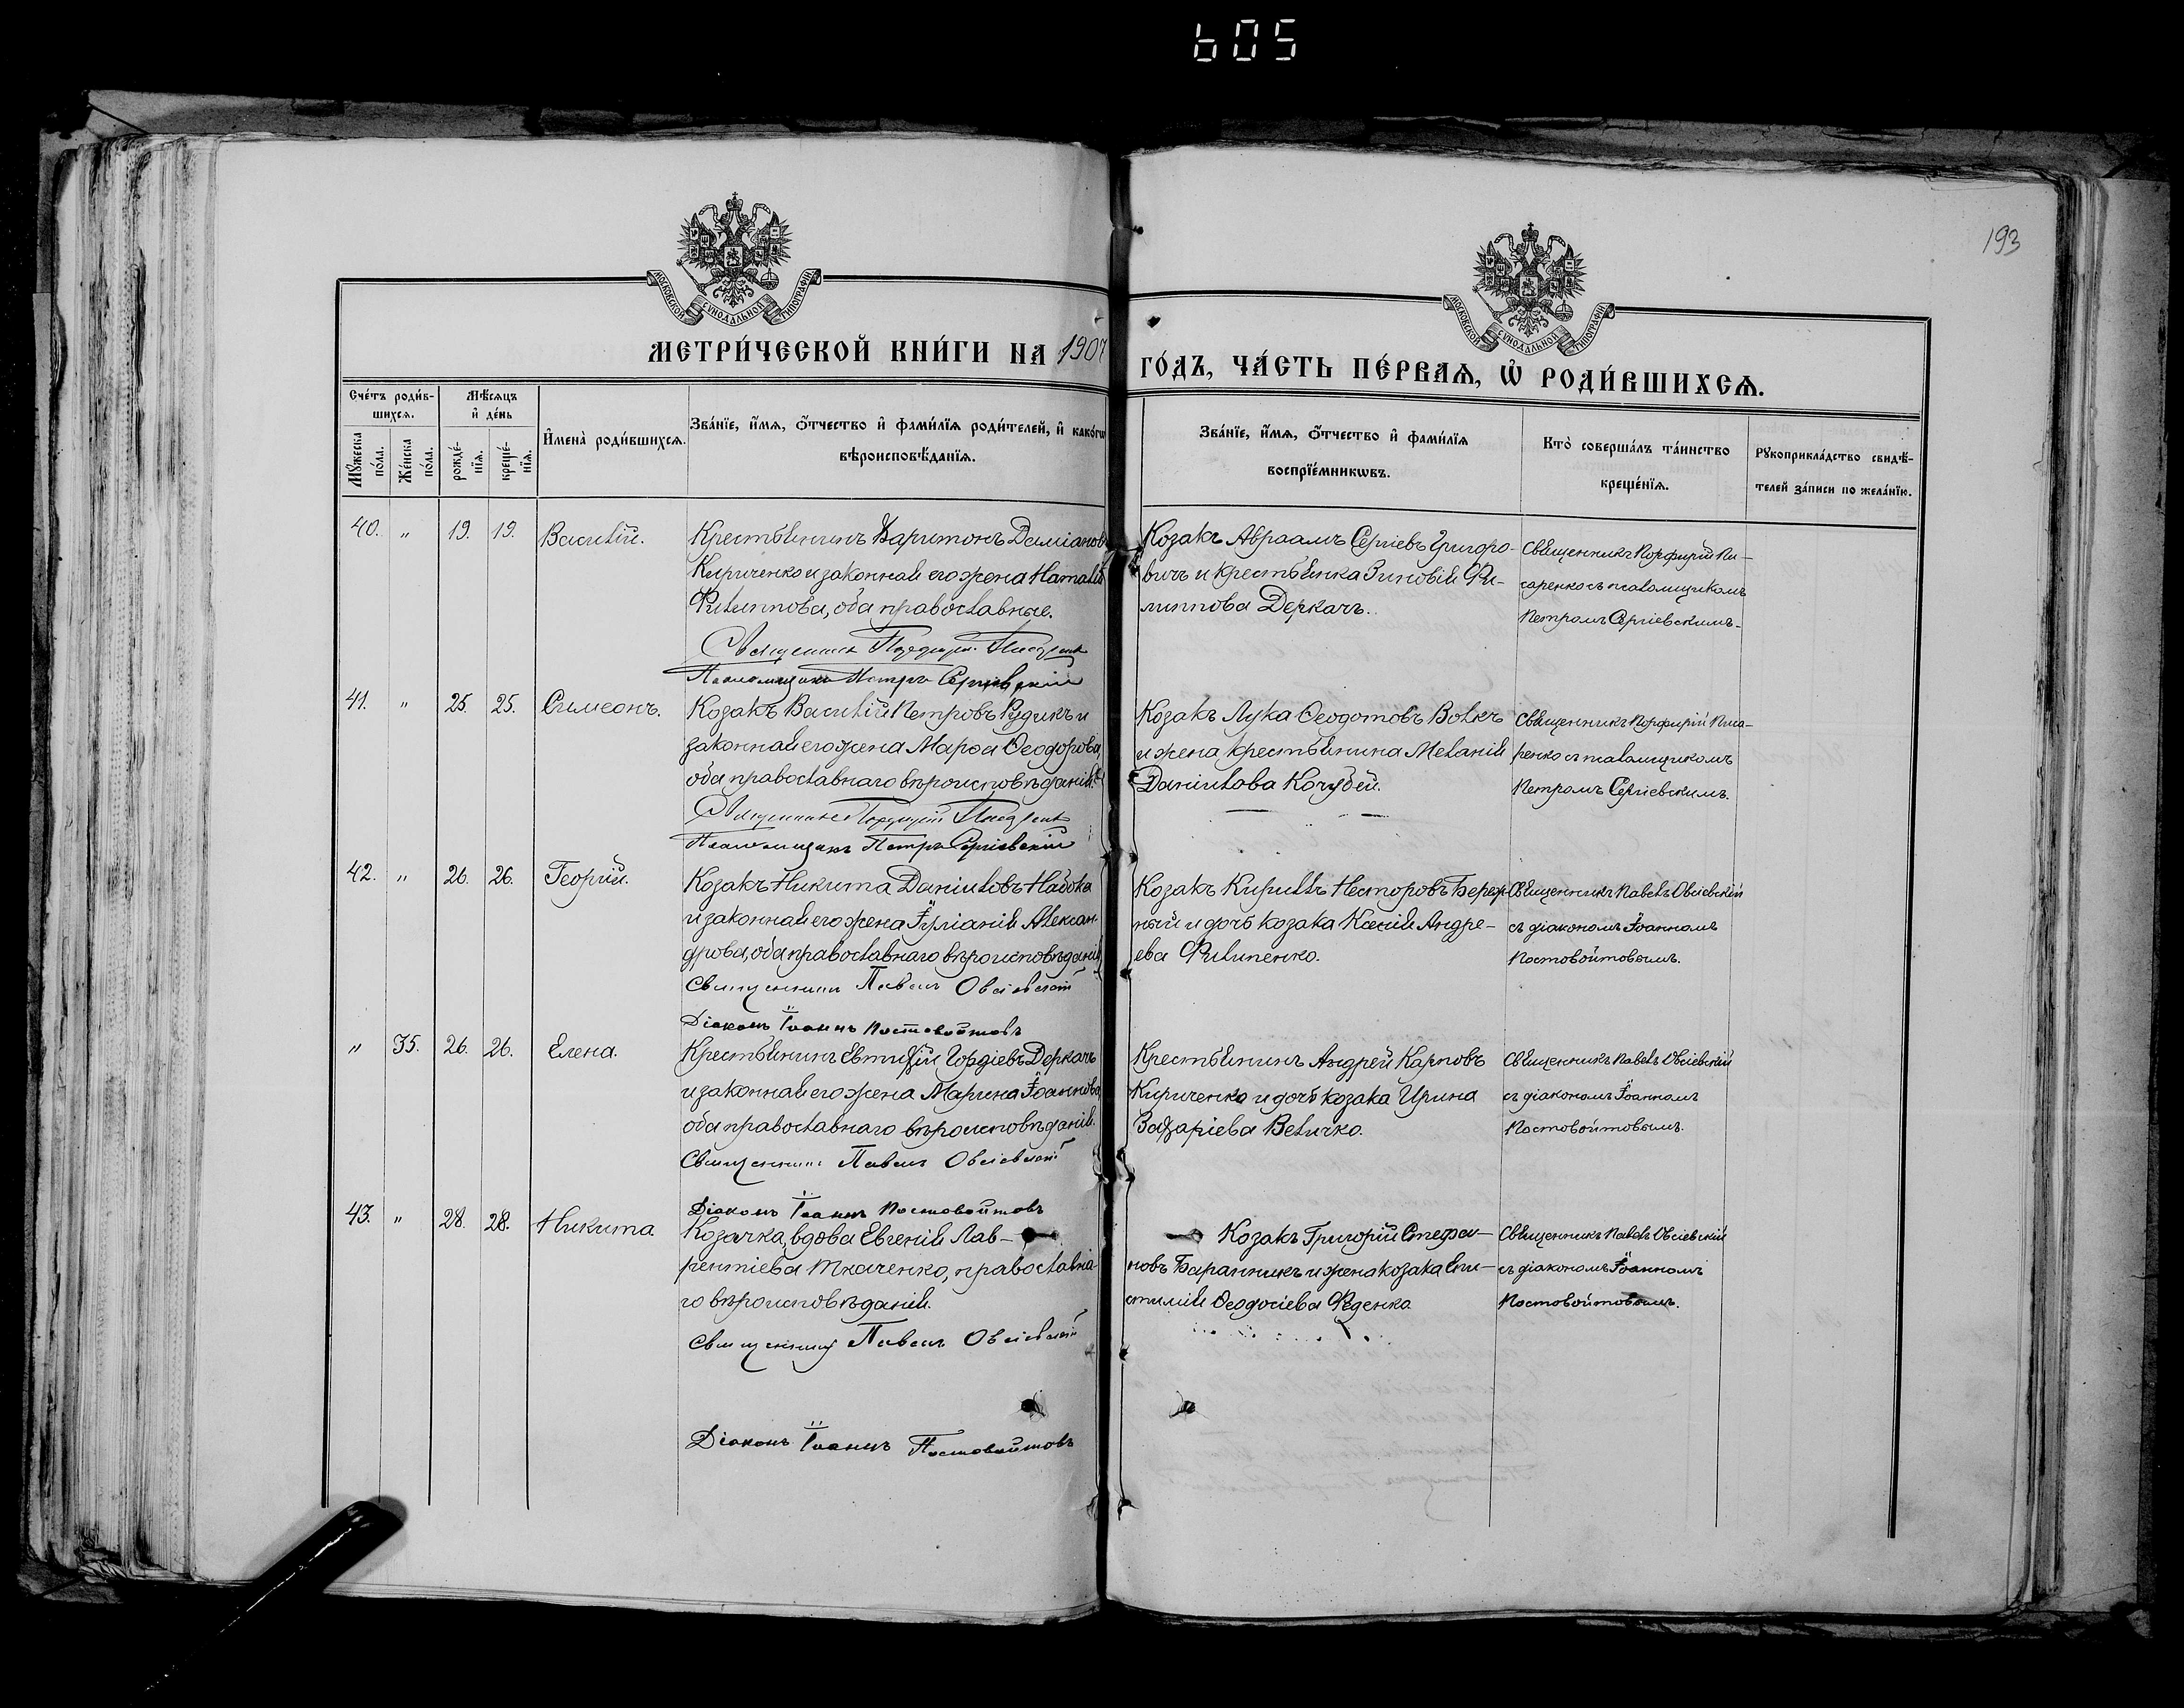 605
193
МОСКОВСКОЙ СУНОДАЛЬНОЙ ТИПОГРАФІИ
МОСКОВСКОЙ СУНОДАЛЬНОЙ ТИПОГРАФІИ
МЕТРИ́ЧЕСКОЙ КНИ́ГИ НА 1907
ГО́ДЪ, ЧА́СТЬ ПЕ́РВАѦ, Ѡ҆ РОДИ́ВШИХСѦ.
Сче́тъ роди́в-
шихсѧ.
Мꙋ́жеска по́ла.
Же́нска по́ла.
Мѣ́сѧцъ
и҆ де́нь
рожде́-
нїѧ.
креще́-
нїѧ.
И҆мена̀ роди́вшихсѧ.
Зва́нїе, и҆́мѧ, ѻ҆́тчество и҆ фами́лїѧ роди́телей, и҆ како́гѡ
вѣроисповѣ́данїѧ.
Зва́нїе, и҆́мѧ, ѻ҆́тчество и҆ фами́лїѧ
воспрїе́мникѡвъ.
Кто̀ соверша́лъ та́инство
креще́нїѧ.
Рꙋкоприкла́дство свидѣ́-
телей за́писи по жела́нїю.
40. " 19. 19. Василій.
Крестьянинъ Харитонъ Даміановъ
Кириченко и законная его жена Наталія
Филиппова, оба православные.
Священникъ Порфирій Писаренко
Псаломщикъ Петръ Сергіевскій
Козакъ Авраамъ Сергіевъ Григоро-
вичъ и крестьянка Зиновія Фи-
липпова Деркачъ.
Священникъ Порфирій Пи-
саренко съ псаломщикомъ
Петромъ Сергіевскимъ.
41. " 25. 25. Симеонъ.
Козакъ Василій Петровъ Рудикъ и
законная его жена Марѳа Ѳеодорова,
оба православнаго вѣроисповѣданія.
Священникъ Порфирій Писаренко
Псаломщикъ Петръ Сергіевскій
Козакъ Лука Ѳеодотовъ Волкъ
и жена крестьянина Меланія
Даніилова Кочубей.
Священникъ Порфирій Писа-
ренко съ псаломщикомъ
Петромъ Сергіевскимъ.
42. " 26. 26. Георгій.
Козакъ Никита Даніиловъ Набока
и законная его жена Іуліанія Алексан-
дрова, оба православнаго вѣроисповѣданія
Священникъ Павелъ Овсіевскій
Діаконъ Іоаннъ Постовойтовъ
Козакъ Кириллъ Несторовъ Береж-
ный и дочь козака Ксенія Андре-
ева Филипенко.
Священникъ Павелъ Овсіевскій
съ діакономъ Іоанномъ
Постовойтовымъ.
" 35. 26. 26. Елена.
Крестьянинъ Евтихій Гордіевъ Деркачъ
и законная его жена Марина Іоаннова,
оба православнаго вѣроисповѣданія.
Священникъ Павелъ Овсіевскій
Діаконъ Іоаннъ Постовойтовъ
Крестьянинъ Андрей Карповъ
Кириченко и дочь козака Ирина
Захаріева Величко.
Священникъ Павелъ Овсіевскій
съ діакономъ Іоанномъ
Постовойтовымъ.
43. " 28. 28. Никита
Козачка, вдова Евгенія Лав-
рентіева Ткаченко, православна-
го вѣроисповѣданія.
Священникъ Павелъ Овсіевскій
Діаконъ Іоаннъ Постовойтовъ
Козакъ Григорій Стефа-
новъ Баранникъ и жена козака Епи-
стимія Ѳеодосіева Феденко.
Священникъ Павелъ Овсіевскій
съ діакономъ Іоанномъ
Постовойтовымъ.